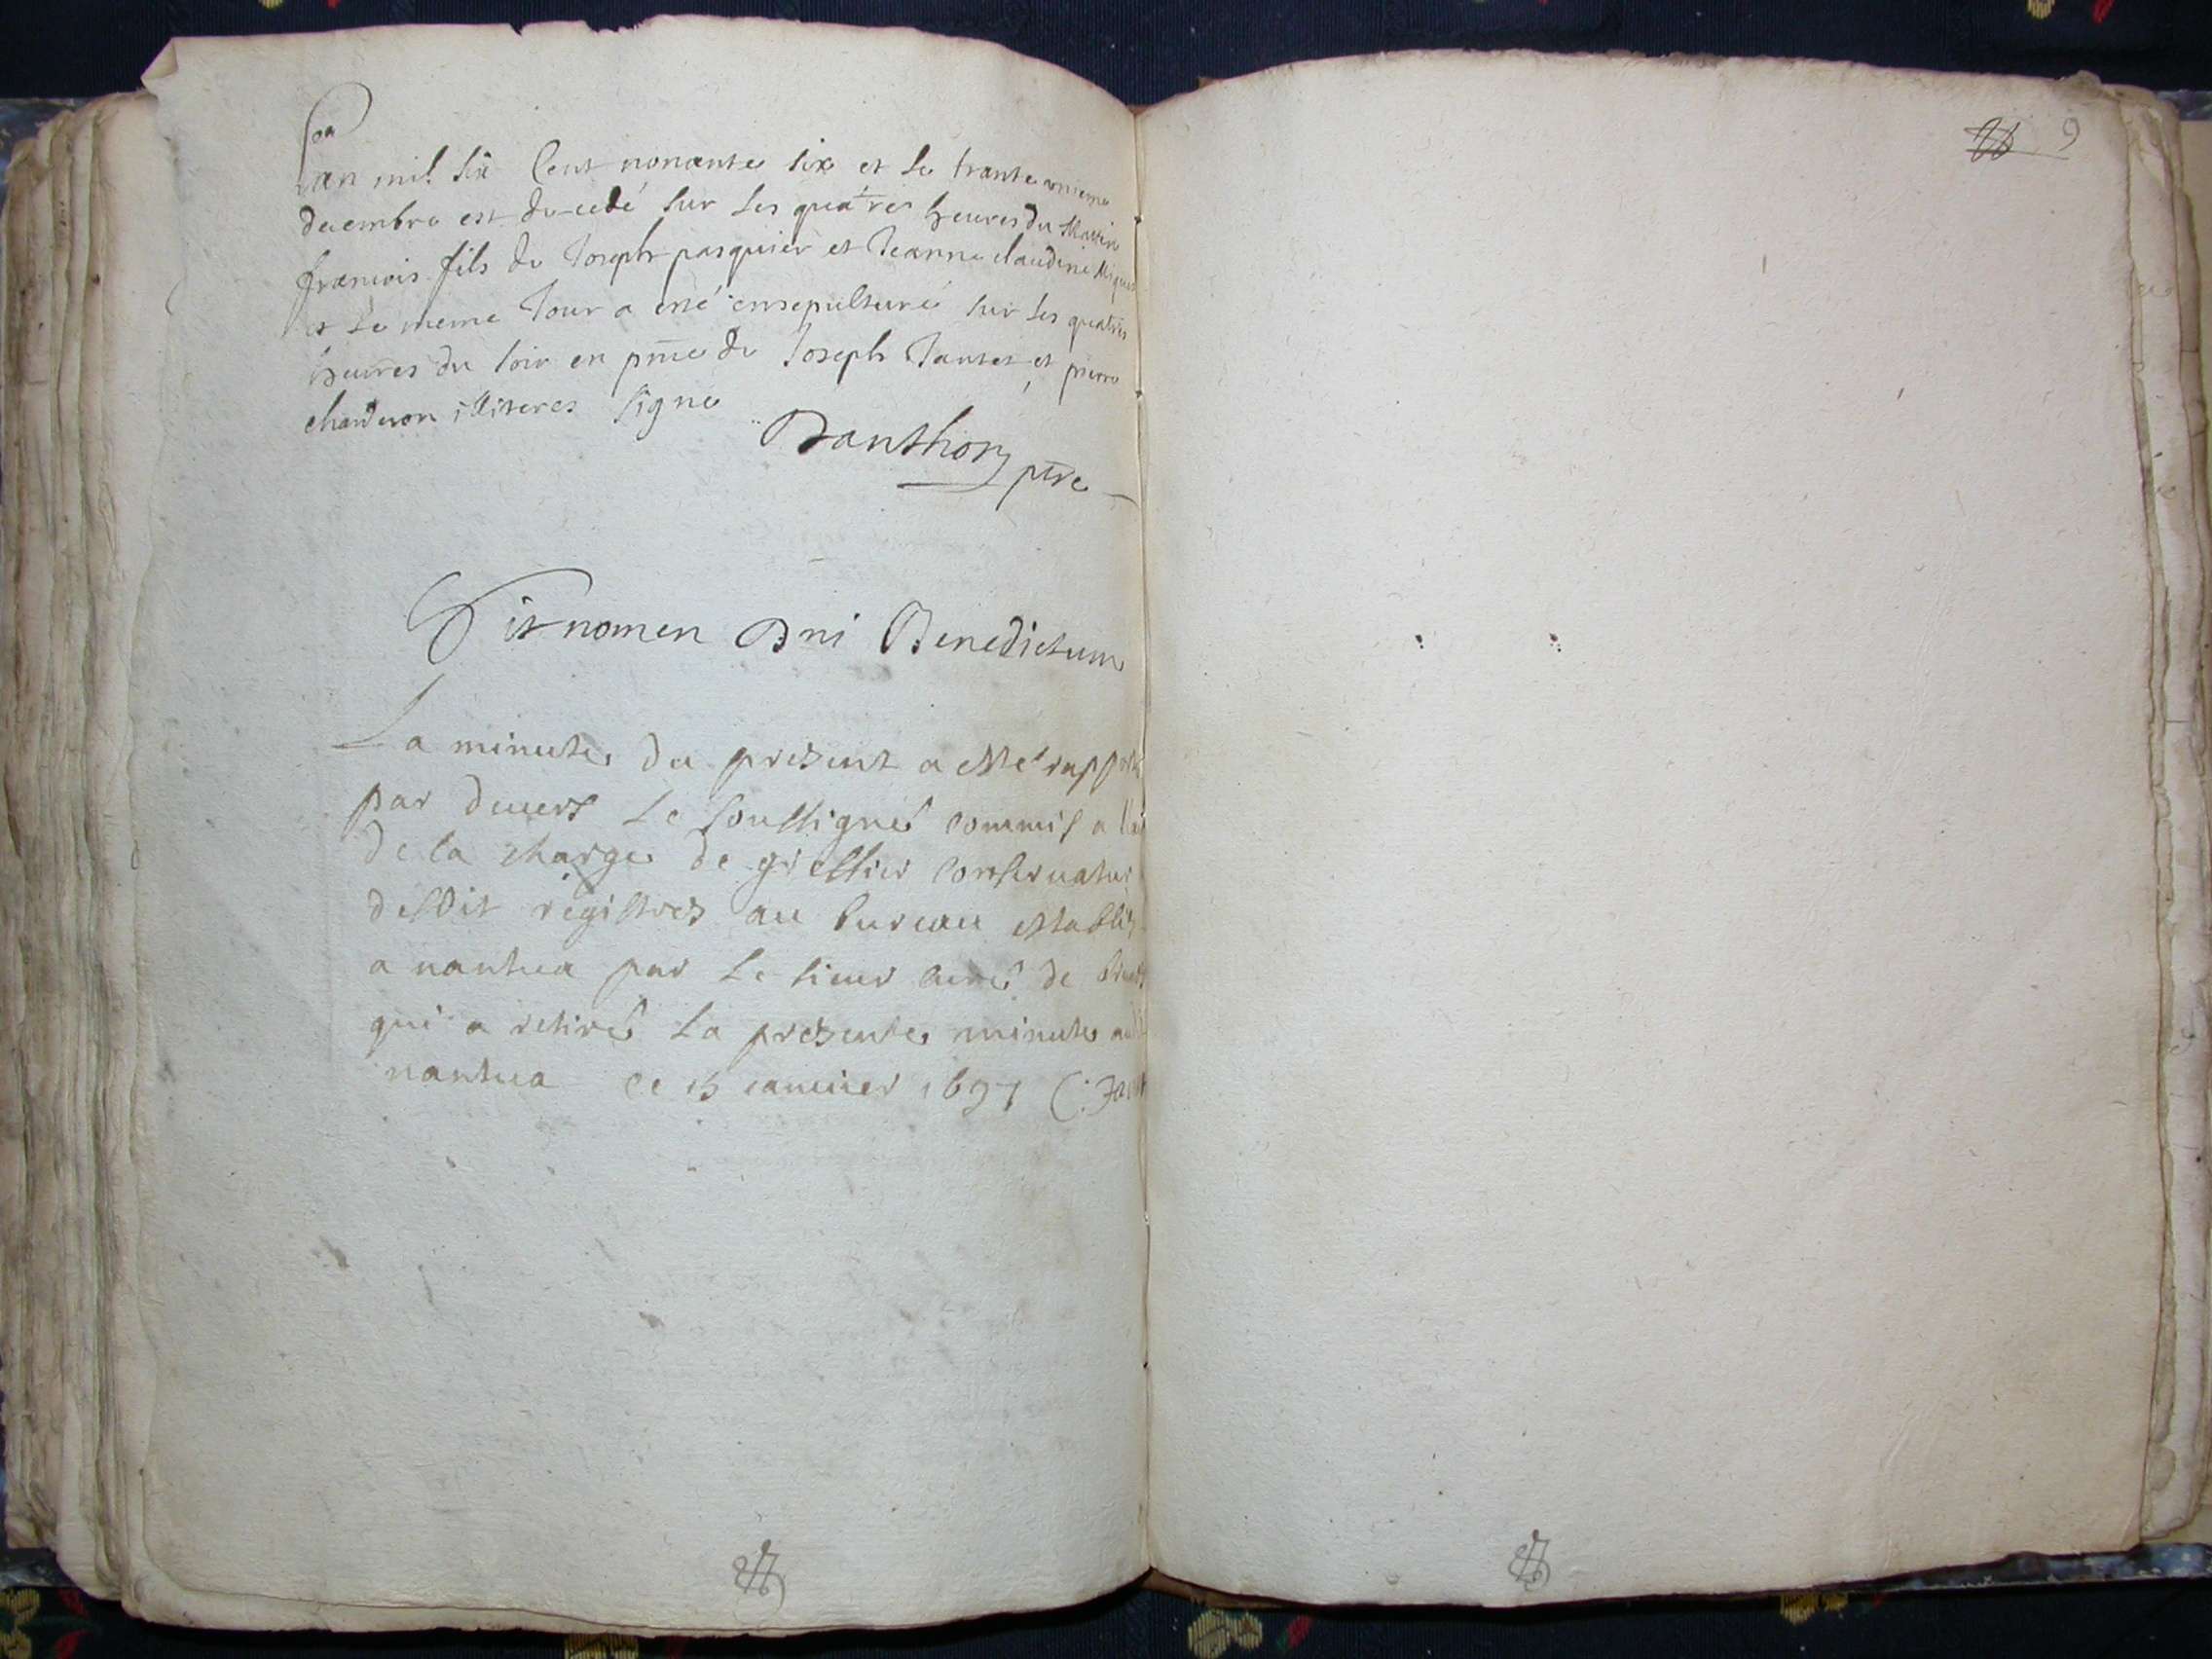 Lan mil six Cent nonante six et le trante unieme
decembre est decedé sur les quatres heures du Mattin
francois fils de Joseph pasquier et Jeanne claudine
et le meme Jour a esté ensepulturé sur les quatres
heures du soir en pnce de Joseph Jantet et pierre
charderon illiteres signe
Danthon ptre
Sit nomen Dni Benedictum
La minute du present a esté rapporté
par devers le soussigné commis a
de la charge de greffier conservateur
desdit registres au bureau establis
a nantua par le sieur curé de
qui a retiré la presente minute
nantua ce 15 ianvier 1697
9